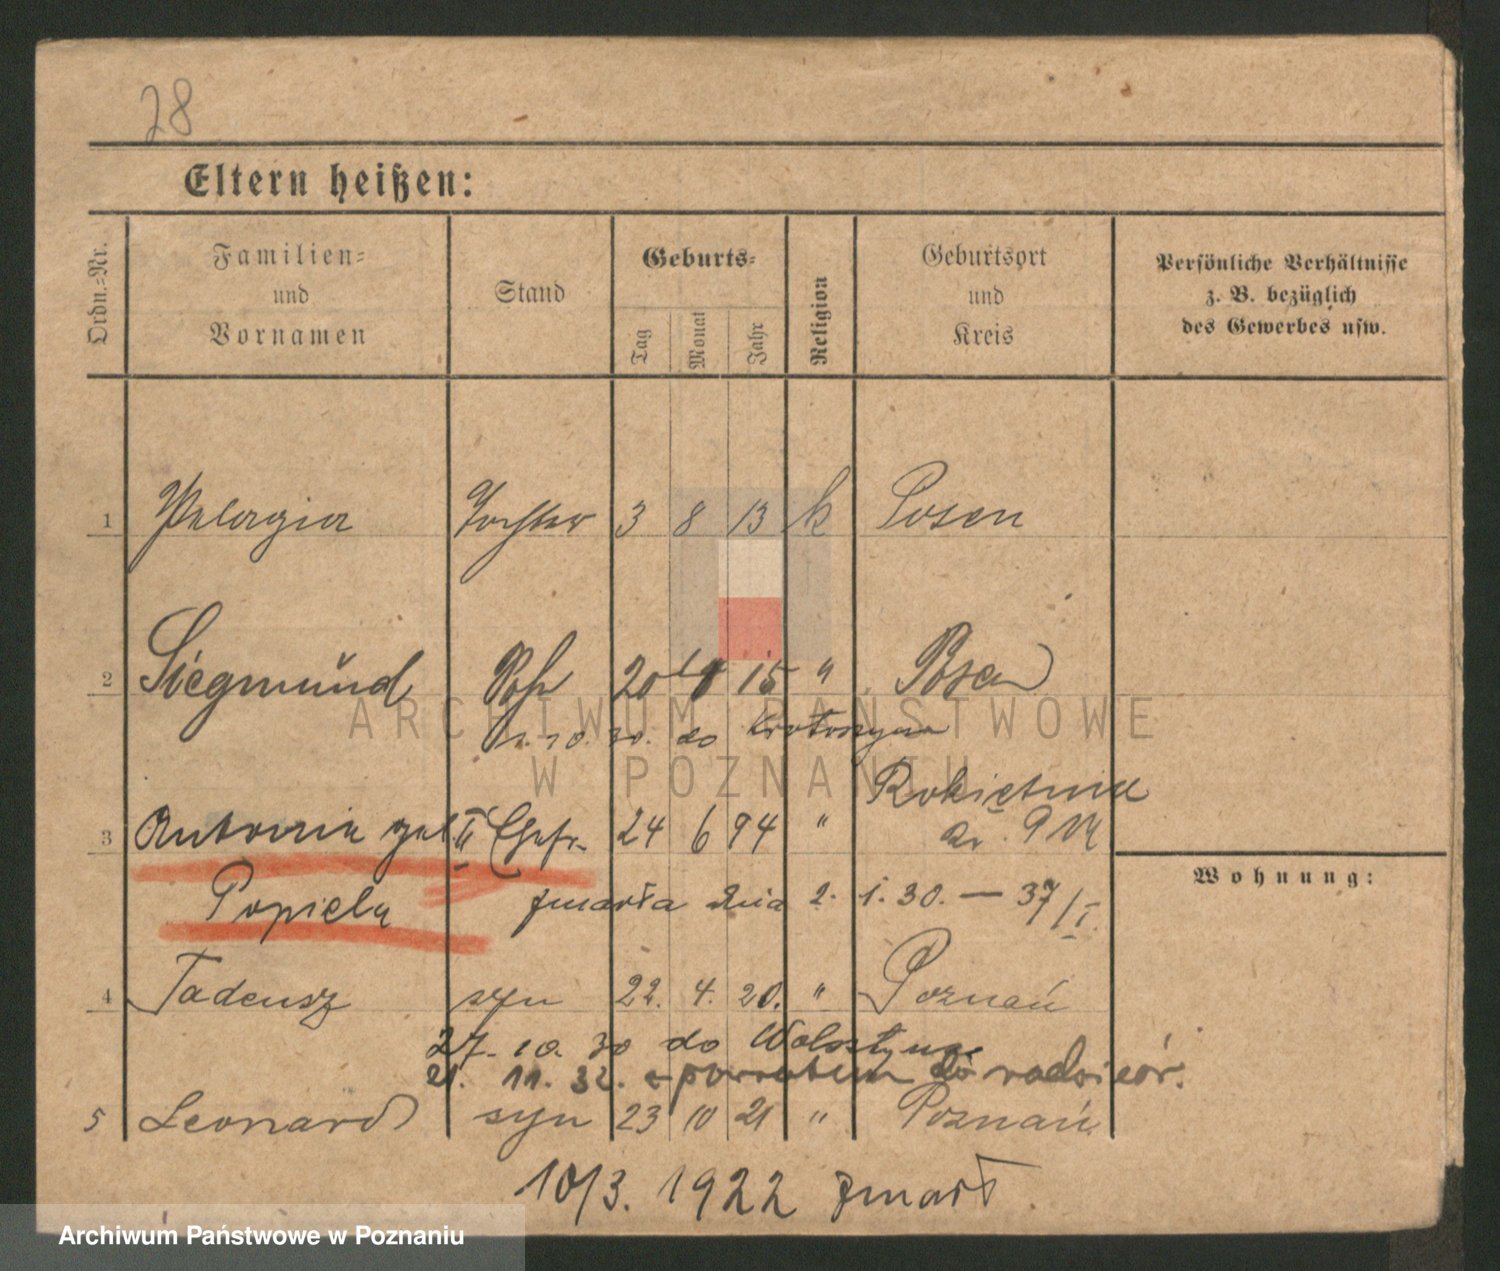 28
Eltern heißen:
Ordn.-Nr.
Familien-
und
Vornamen
Stand
Geburts-
Tag
Monat
Jahr
Religion
Geburtsort
und
Kreis
Persönliche Verhältnisse
z. B. bezüglich
des Gewerbes usw.
1 Pelagia Tochter 3 8 13 k Posen
2 Siegmund Sohn 20 15 " Posen
10. 30. do Krotoszyna
Rokietnica
3 Antonia geb. II Ehefr. 24 6 94 "
Popiela zmarła dnia 2. 1. 30. — 37/I.
Wohnung:
4 Tadeusz syn 22. 4. 20. " Poznań
27. 10. 30 do Wolsztyna
21. 11. 32. z powrotem do rodziców.
5 Leonard syn 23 10 21 " Poznań
10/3. 1922 zmarł
ARCHIWUM PAŃSTWOWE
W POZNANIU
Archiwum Państwowe w Poznaniu